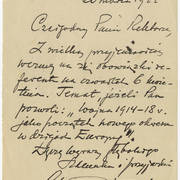 Czcigodny Panie Rektorze,
Z wielką przyjemnością
wezmę na się obowiązki re-
ferenta na czwartek 6 kwie-
tnia. Temat, jeżeli Pan
pozwoli: „Wojna 1914-18 r.
jako początek nowego okresu
w dziejach Europy"
Łączę wyrazy głębokiego
szacunku i przyjaźni